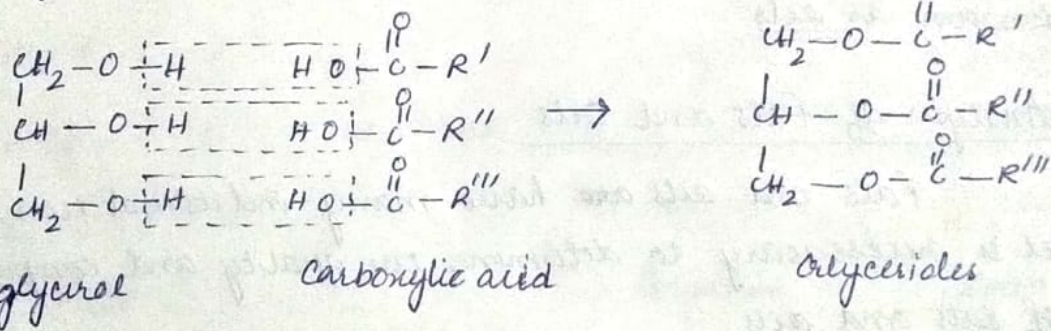 CH2 – O – H   H O – C – R'   CH2 – O – C – R'
O   O
CH – O – H   H O – C – R''   → CH – O – C – R''
O   O
CH2 – O – H   H O – C – R'''   CH2 – O – C – R'''
glycerol   Carboxylic acid   Glycerides